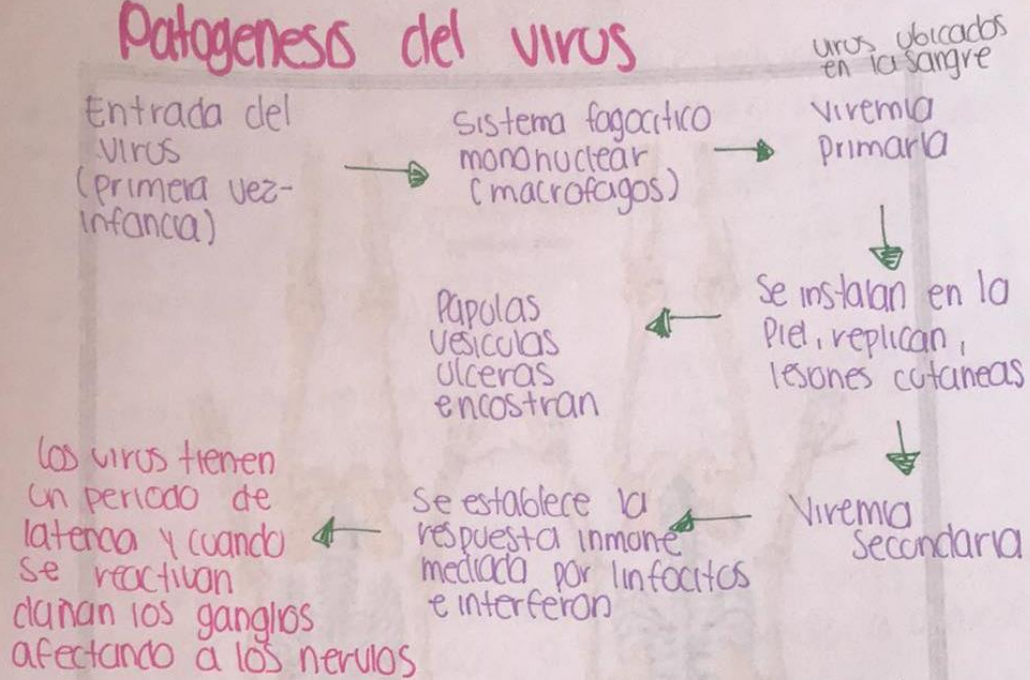 Patogenesis del virus
virus ubicados
en la sangre
Entrada del
virus
(primera vez-
infancia)
Sistema fagocitico
mononuclear
(macrofagos)
Viremia
primaria
Se instalan en la
Piel, replican,
lesiones cutaneas
Papulas
vesiculas
ulceras
encostran
Viremia
secundaria
Se establece la
respuesta inmune
mediada por linfocitos
e interferon
Los virus tienen
un periodo de
latencia y cuando
se reactivan
dañan los ganglios
afectando a los nervios